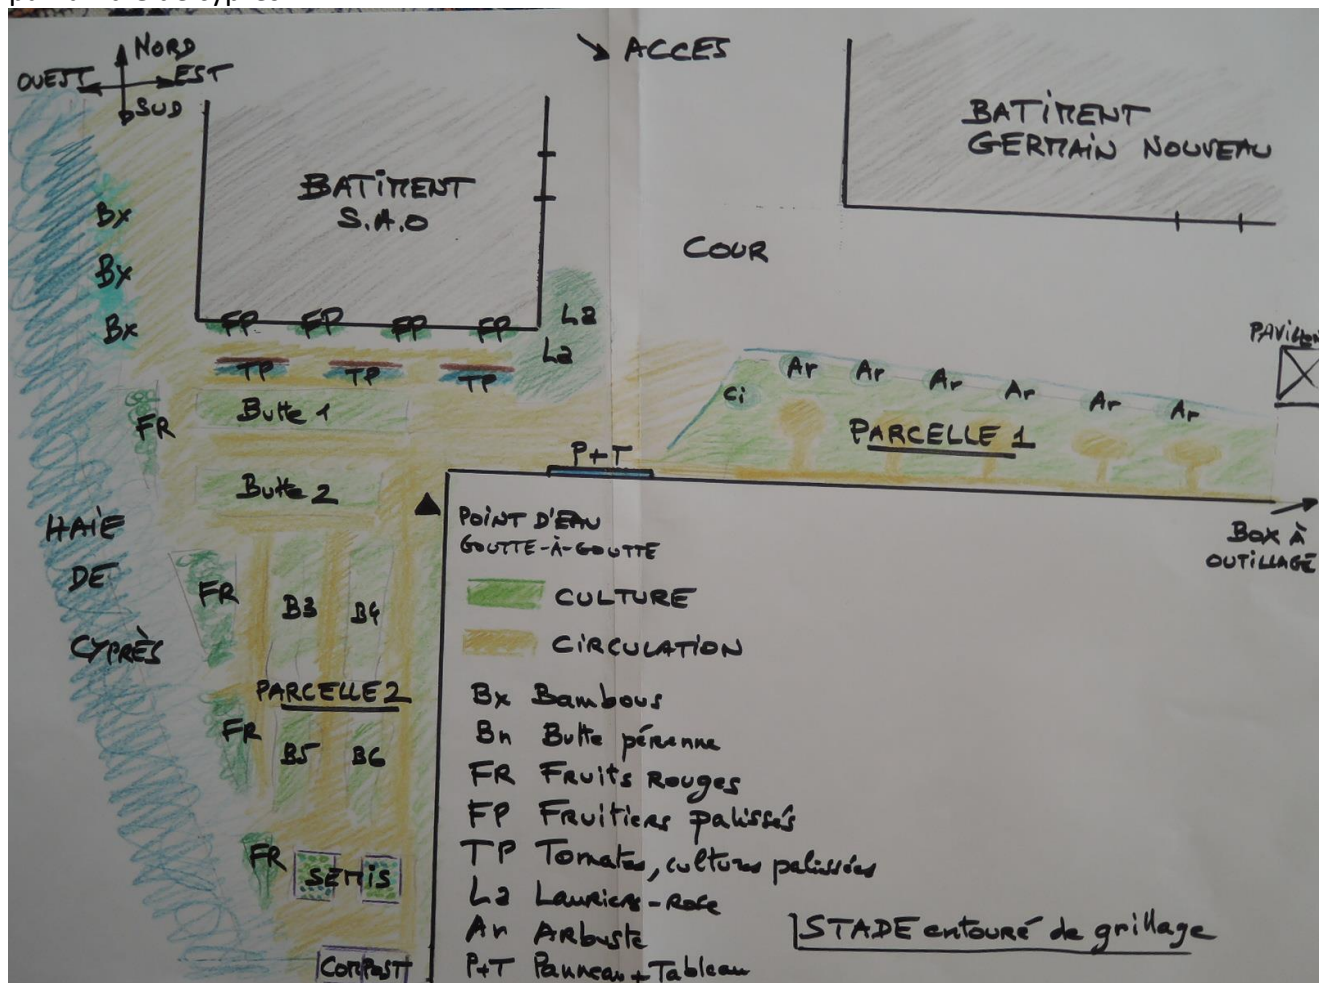 NORD
OUEST
EST
SUD
ACCES
BATIMENT
S.A.O
BATIMENT
GERMAIN NOUVEAU
COUR
Bx
Bx
Bx
FP FP FP FP
La
La
TP TP TP
Butte 1
FR
Butte 2
Ci
Ar Ar Ar Ar Ar Ar
PARCELLE 1
P+T
BOX À
OUTILLAGE
HAIE
DE
CYPRÈS
FR
B3 B4
PARCELLE 2
FR
B5 B6
FR
SEMIS
COMPOST
POINT D'EAU
GOUTTE-À-GOUTTE
CULTURE
CIRCULATION
Bx Bambous
Bn Butte pérenne
FR Fruits Rouges
FP Fruitiers palissés
TP Tomates, cultures palissées
La Lauriers-Rose
Ar Arbuste
P+T Panneau + Tableau
STADE entouré de grillage